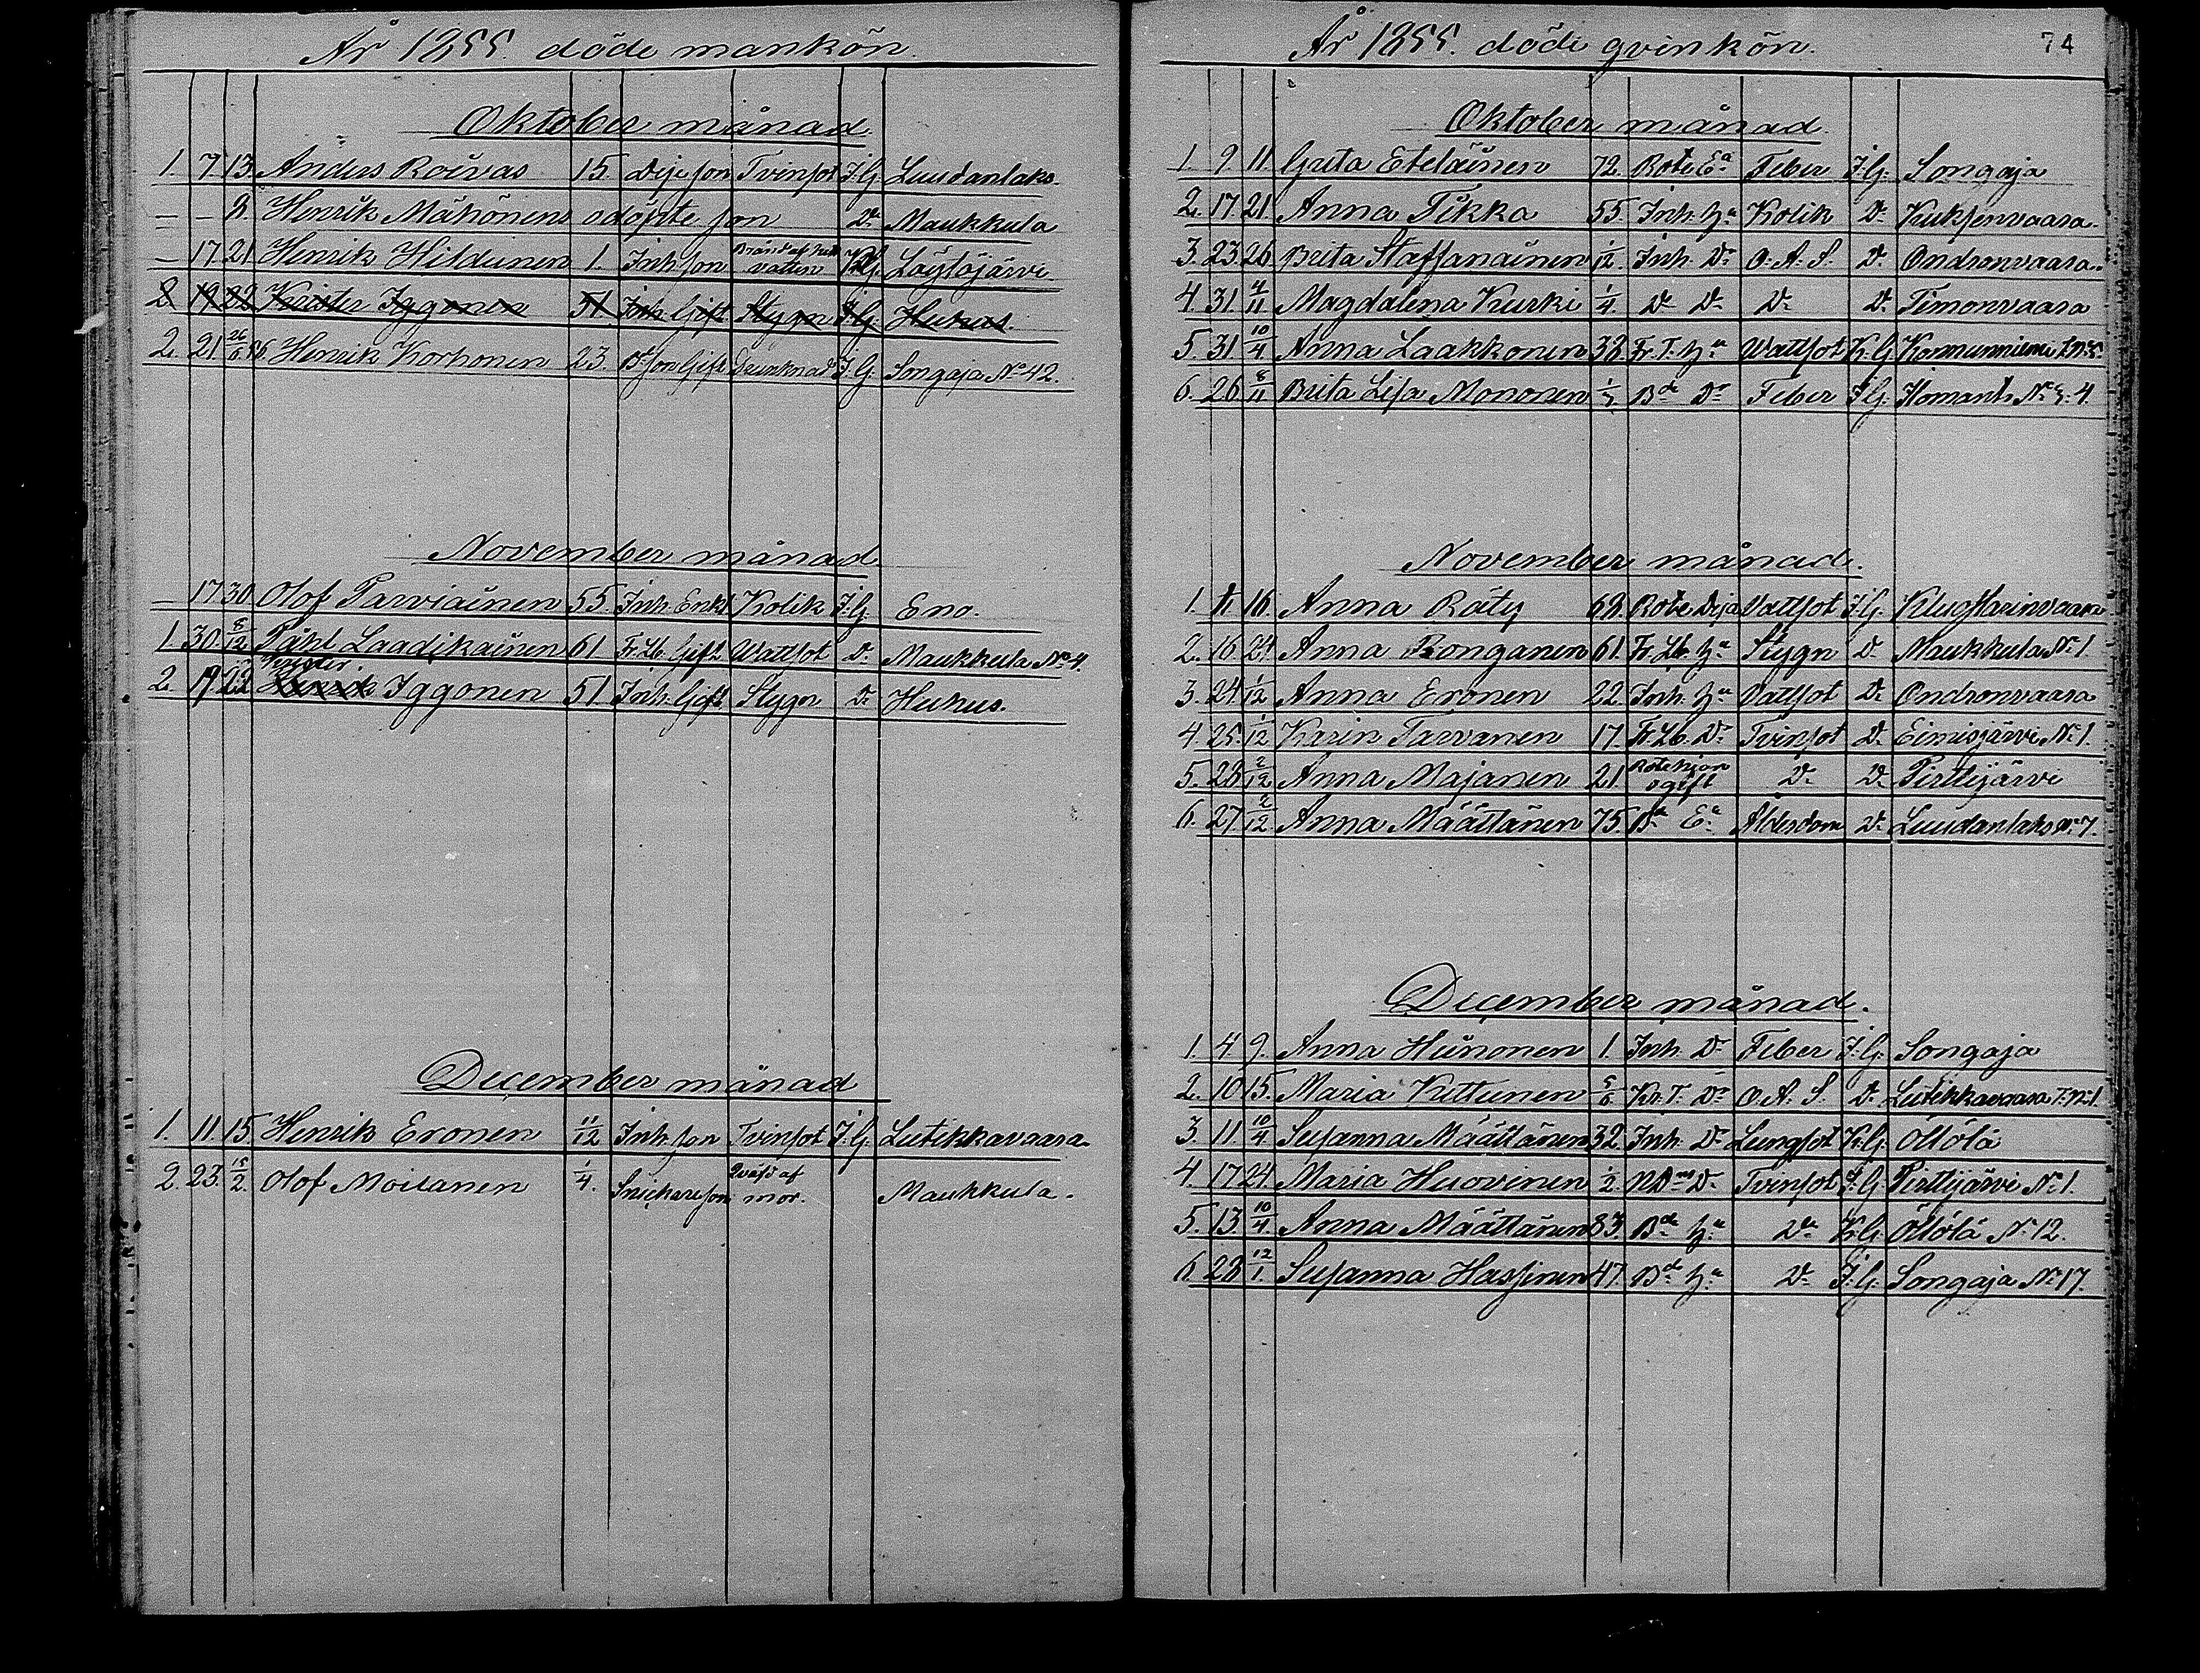 År 1855. döde mankön.
Oktober månad
1. 7 13 Anders Roivas 15 Deje son Tvinsot J.G. Luudanlaks.
— — 8. Henrik Mähönens odöpte son D:o Maukkula
— 17 21 Henrik Hildunen 1. Inh. son vatten K.G. Löytöjärvi
2 19 22 Krister Iggonen 51 Inh. Gift Stygn J.G. Huhus.
2. 21 26/8 56. Henrik Korhonen 23. B. son Gift Drunknad J.G. Songaja No 42.
November månad
— 17 30 Olof Parviainen 55 Inh. Enkl. Kolik J.G. Eno.
1. 30 8/12 Påhl Laadikainen 61 Fr. Lb. Gift Wattsot D:o Maukkula No 4.
Krister
2. 19 22 Henrik Iggonen 51. Inh. Gift Stygn D:o Huhus.
December månad
1. 11. 15. Henrik Eronen 11/12 Inh. son Tvinsot J.G. Lutikkavaara
2. 23. 15/2. Olof Moilanen 1/4. Snickare son Qväfd af mor. Maukkula.
År 1855. döde qvinkön. 74
Oktober månad.
1. 9. 11. Greta Eteläinen 72. Rote E:a Feber J.G. Songaja
2. 17. 21. Anna Tikka 55. Inh. H:u Kolik D:o Kuksenvaara.
3. 23 26 Brita Staffanainen 1/12. Inh. D:r O. A. S. D:o Ondronvaara.
4. 31. 4/11 Magdalena Kurki 1/4. D:o D:r D:o D:o Timonvaara
5. 31. 10/4 Anna Laakkonen 38. Fr. T. H:u Wattsot K.G. Kormunniemi
6. 26 8/11 Brita Lisa Mononen B:de D:r Feber J.G. Ilomants
November månad.
1. 11. 16. Anna Räty 68. Rote Deja Vattsot J.G.
2. 16 21 Anna Ronganen 61. Fr. Lb. H:u Stygn D:o Maukkula No 1.
3. 24. 1/12 Anna Eronen 22. Inh. H:u Vattsot D:o Ondronvaara
4. 25. 1/12 Karin Tarvanen 17. Fr. Lb. D:r Tvinsot D:o Eimisjärvi No 1.
5. 28 2/12 Anna Majanen 21. Rotehjon ogift D:o D:o Pirttijärvi
6. 27 2/12 Anna Määttänen 75. B:de E:a Ålderdom D:o Luudanlaks No 7.
December månad.
1. 4 9. Anna Huinonen 1. Inh. D:r Feber J.G. Songaja
2. 10 15. Maria Kuttunen 5/6 Kr. T. D:r O. A. S. D:o Lutikkavaara T. No 1.
3. 11. 10/4 Susanna Määttänen 32. Inh. D:r Lungsot K.G. Öllölä
4. 17 24. Maria Huovinen 1/2. D:r Tvinsot J.G. Pirttijärvi No 1.
5. 13. 10/4 Anna Määttänen 83. B:de H:u D:o K.G. Öllölä No 12.
6. 28 12/1. Susanna Hassinen 47. B:de H:u D:o J.G. Songaja No 17.